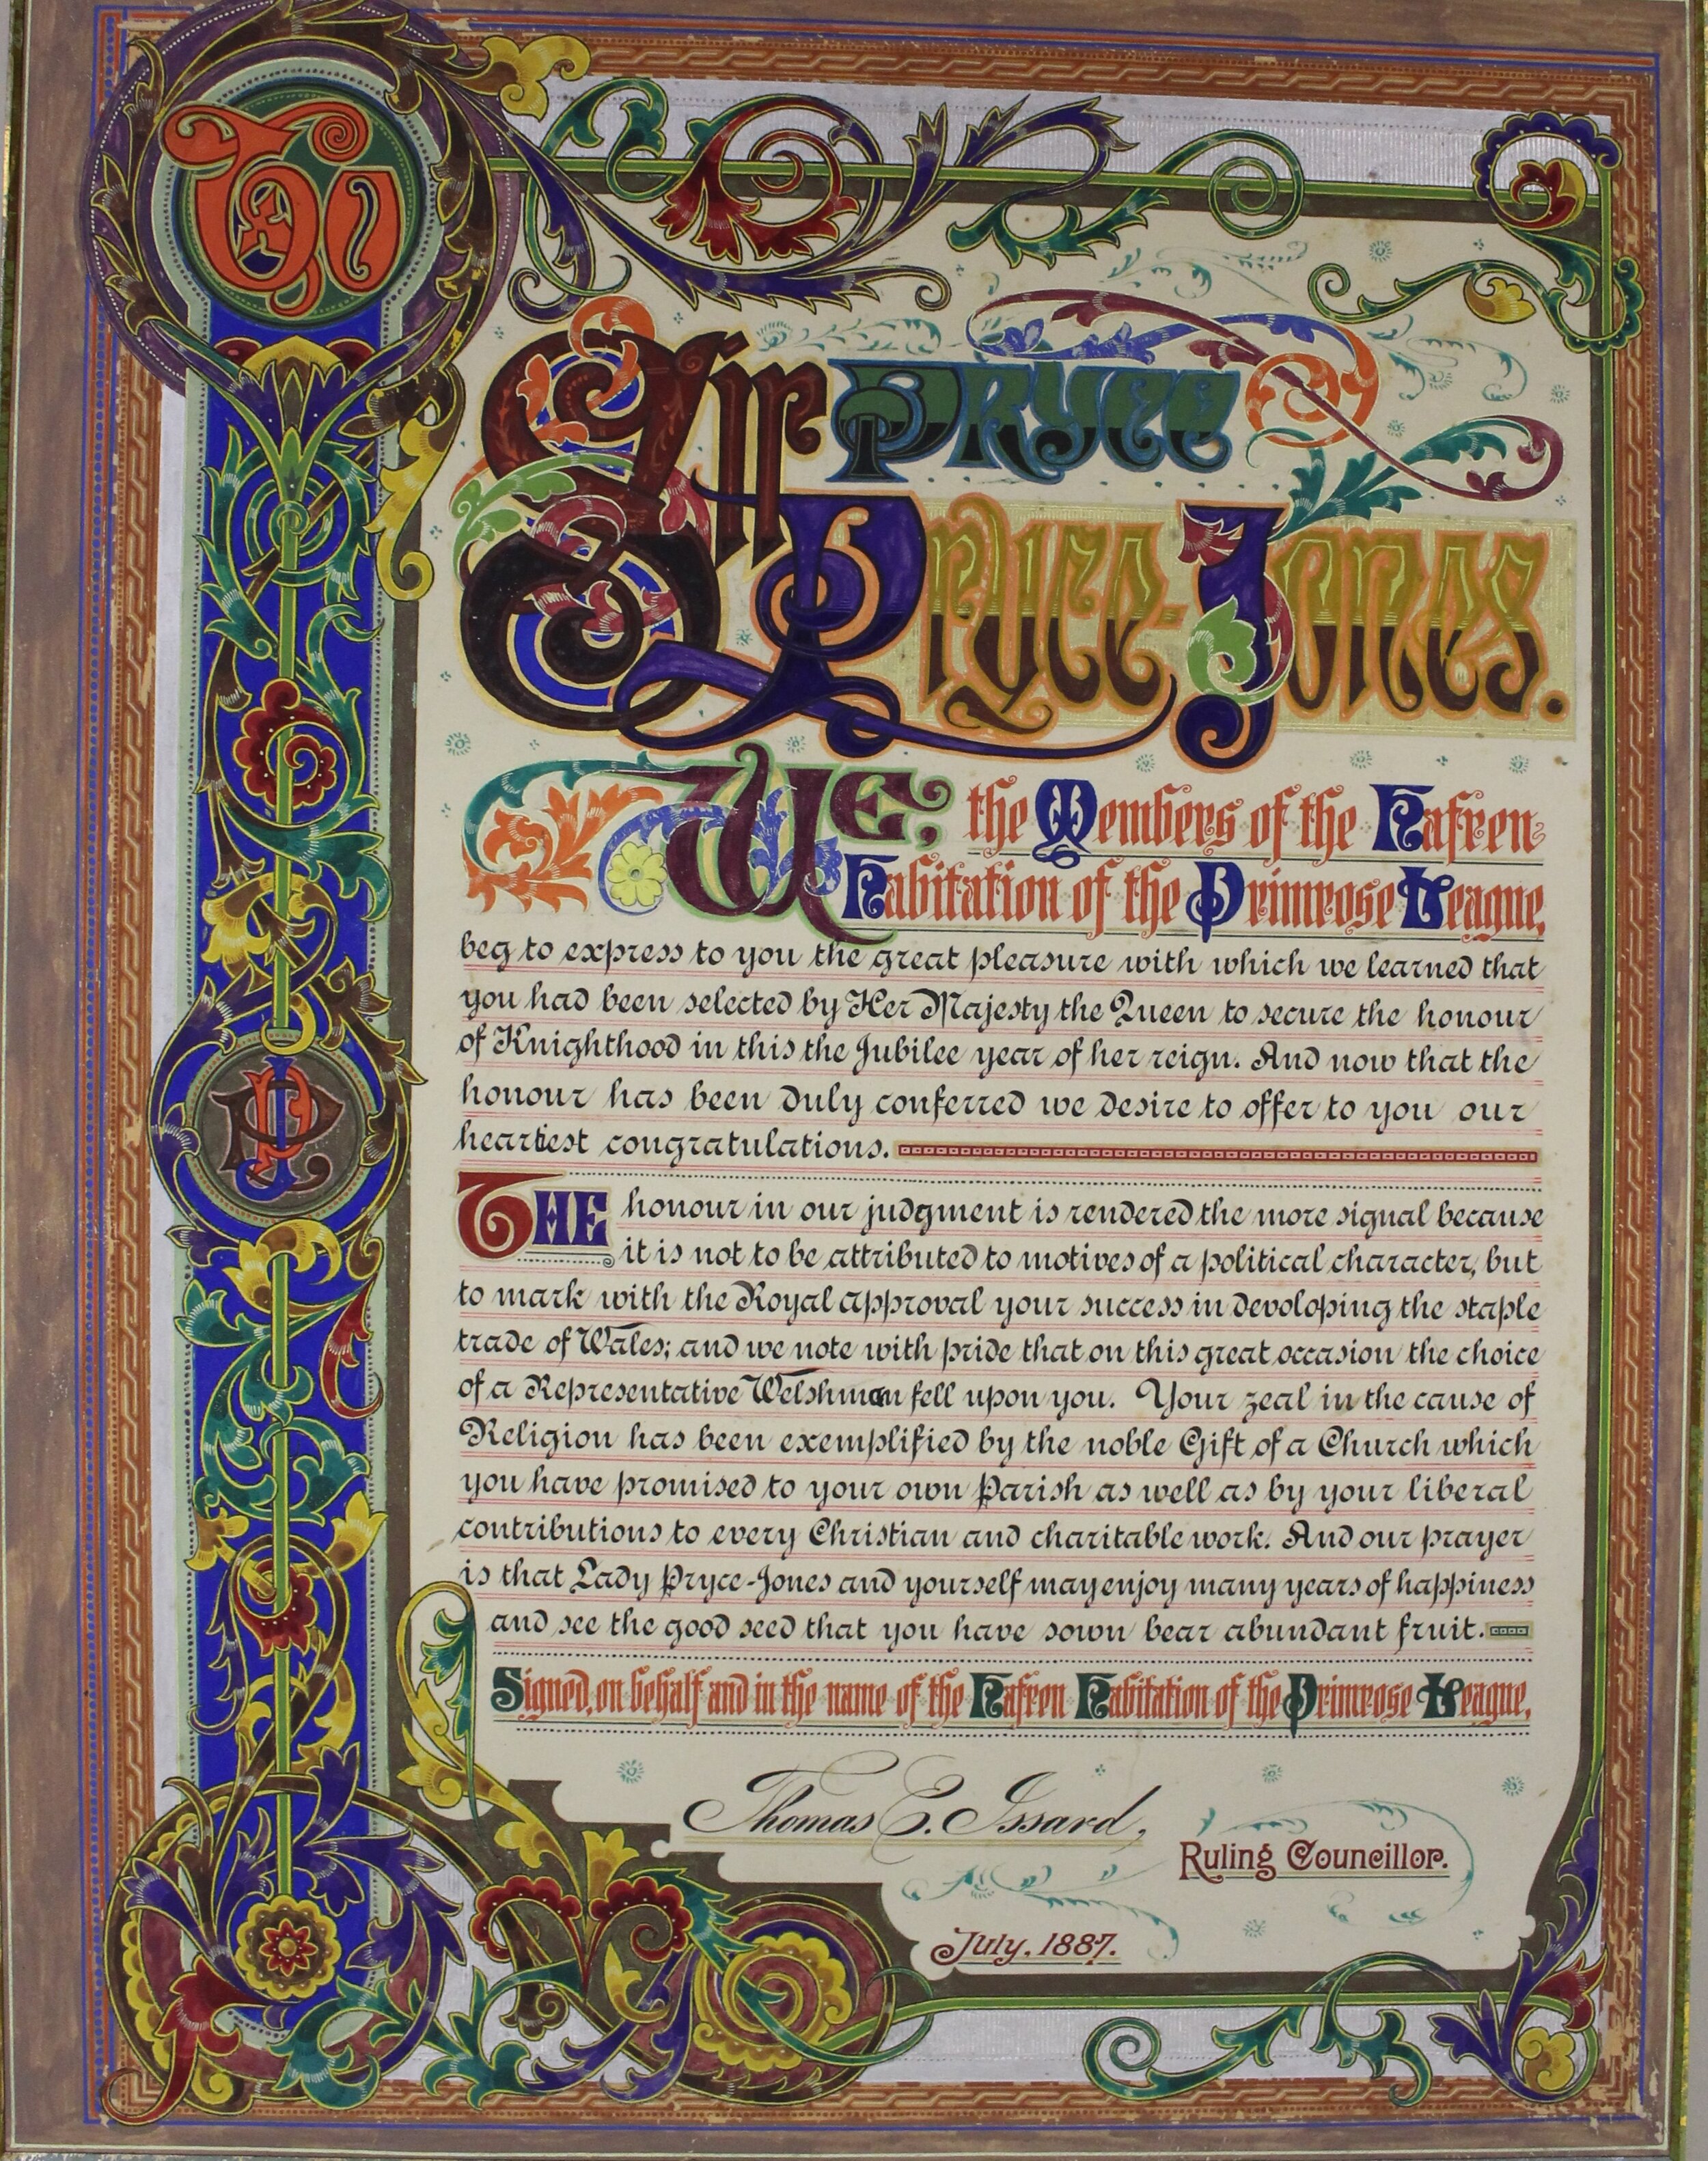 To
Sir Pryce
Pryce-Jones.
We, the Members of the Hafren
Habitation of the Primrose League,
beg to express to you the great pleasure with which we learned that
you had been selected by Her Majesty the Queen to secure the honour
of Knighthood in this the Jubilee year of her reign. And now that the
honour has been duly conferred we desire to offer to you our
heartiest congratulations.
THE honour in our judgment is rendered the more signal because
it is not to be attributed to motives of a political character, but
to mark with the Royal approval your success in devoloping the staple
trade of Wales; and we note with pride that on this great occasion the choice
of a Representative Welshman fell upon you. Your zeal in the cause of
Religion has been exemplified by the noble Gift of a Church which
you have promised to your own Parish as well as by your liberal
contributions to every Christian and charitable work. And our prayer
is that Lady Pryce-Jones and yourself may enjoy many years of happiness
and see the good seed that you have sown bear abundant fruit.
Signed, on behalf and in the name of the Hafren Habitation of the Primrose League,
Thomas E. Issard,
Ruling Councillor.
July, 1887.
PPJ